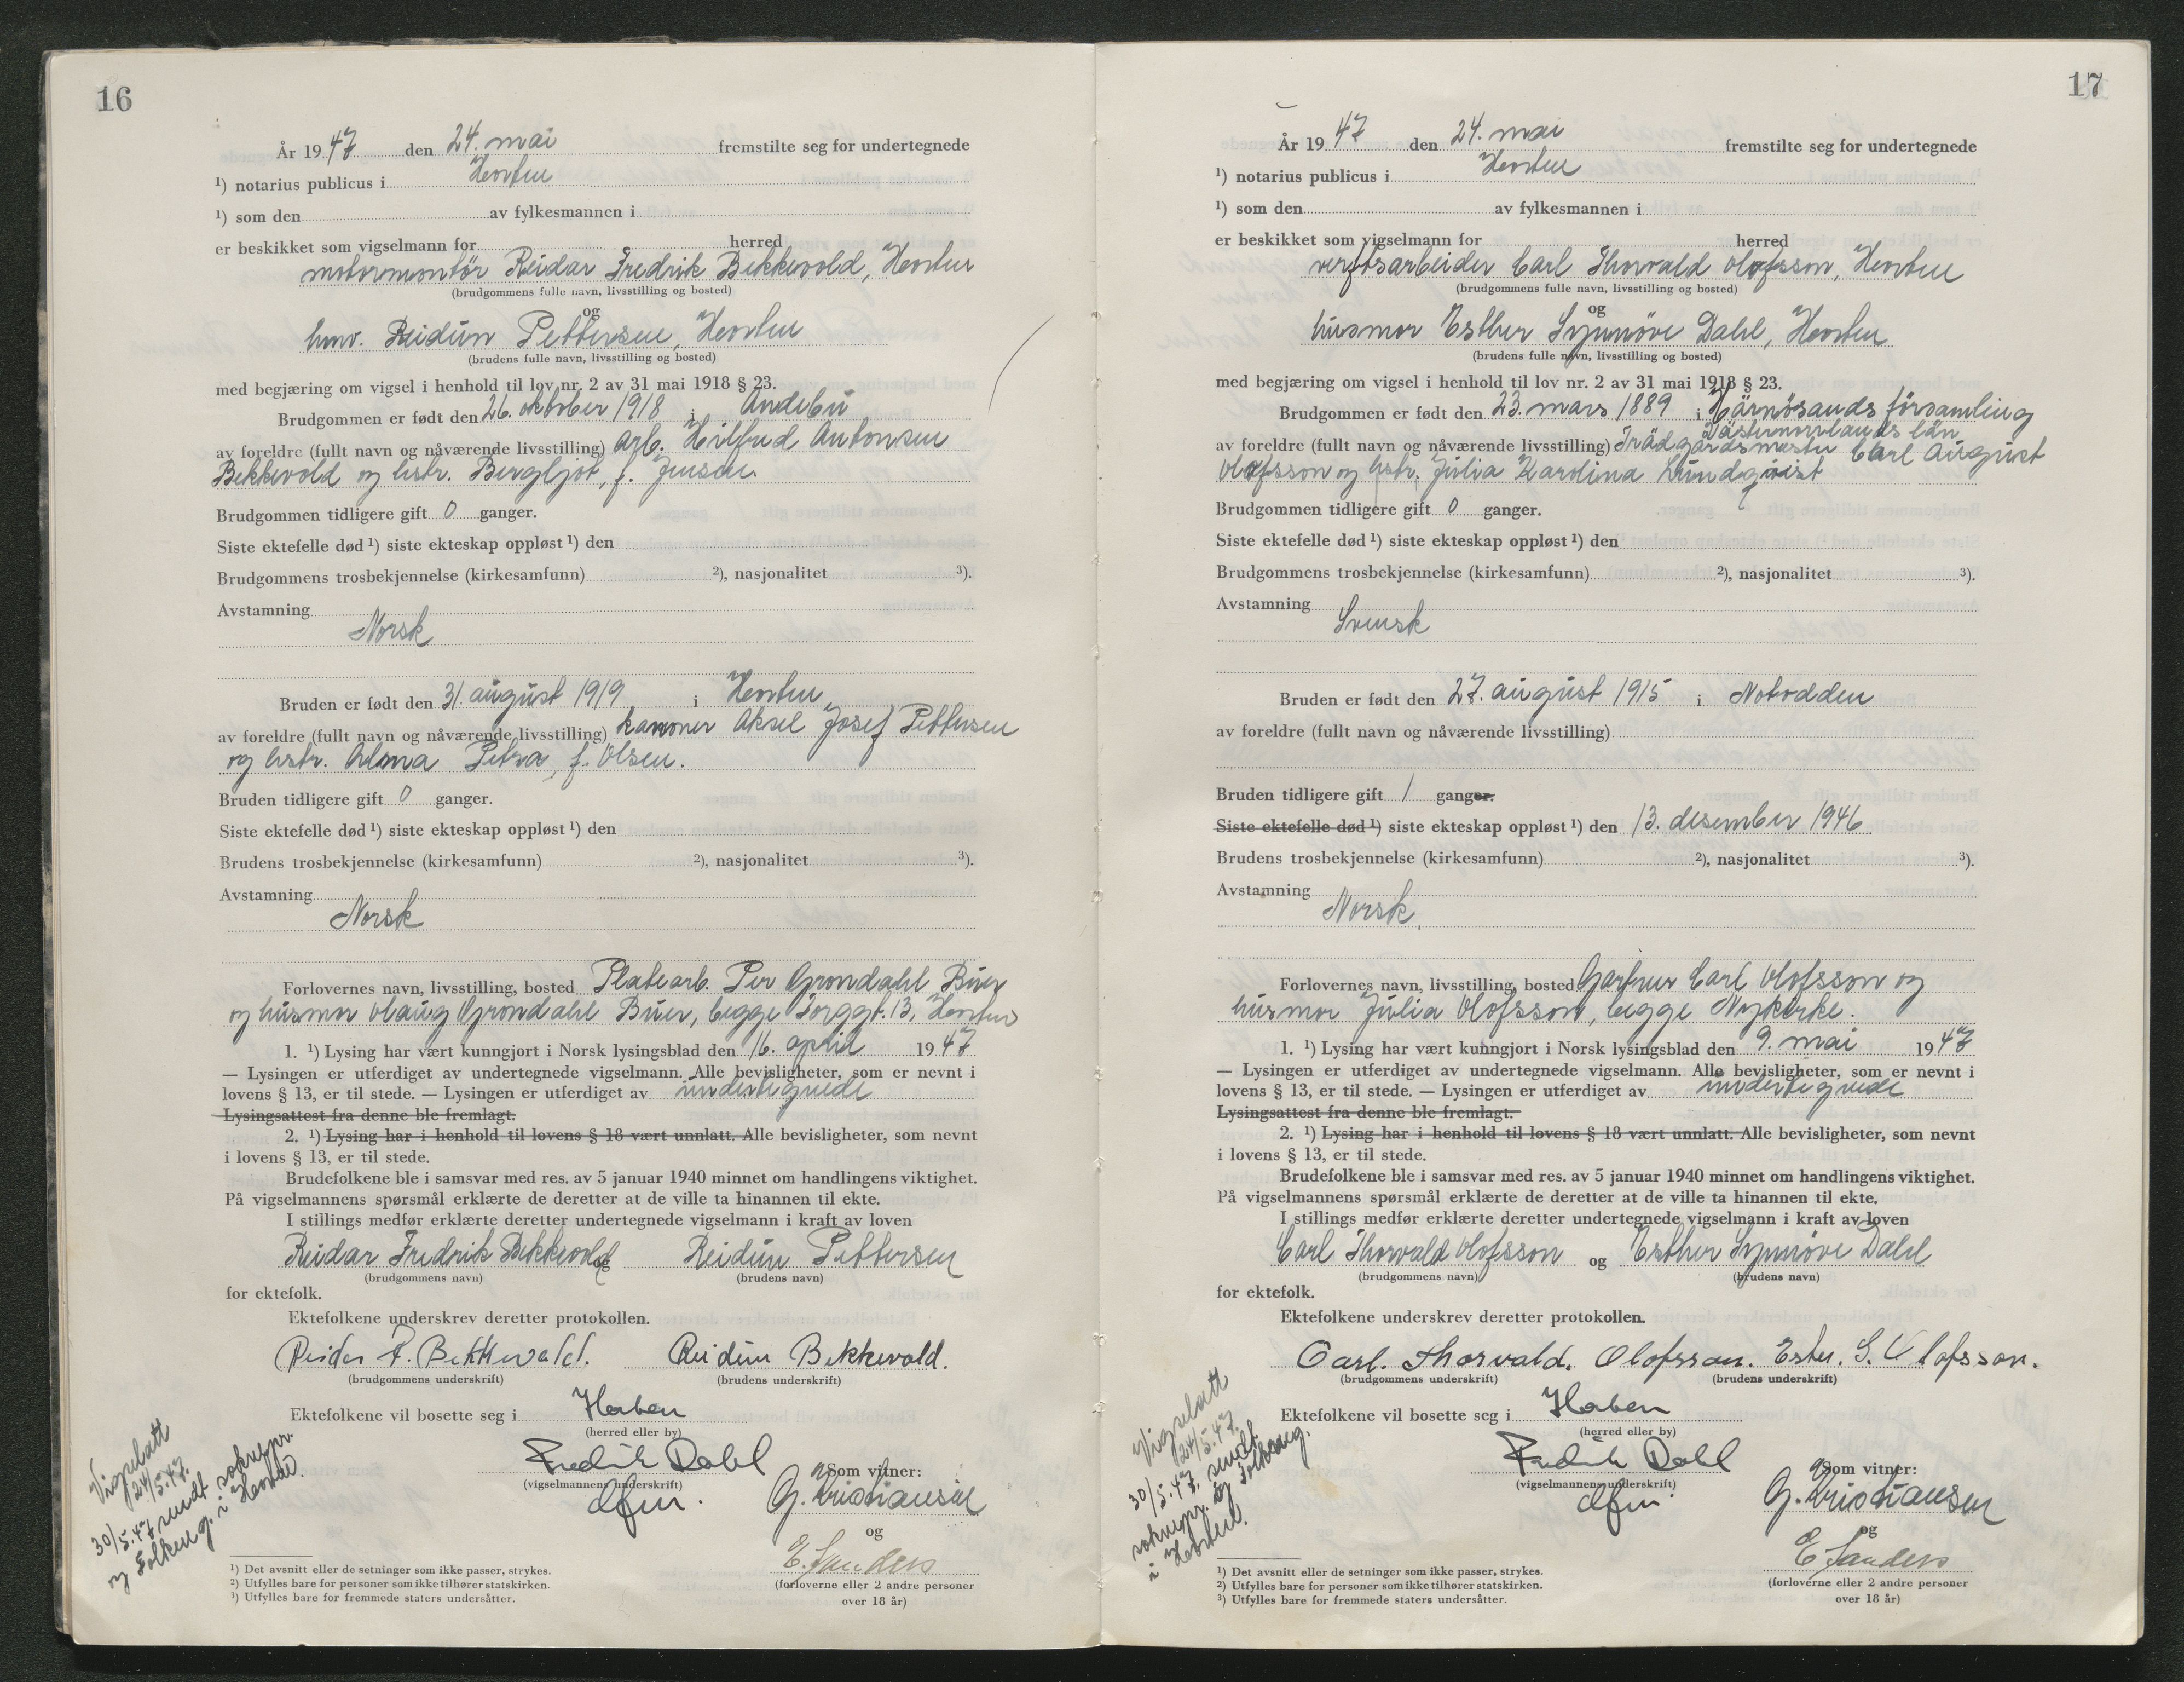 16
År 1947 den 24. mai fremstilte seg for undertegnede
¹) notarius publicus i Horten
¹) som den av fylkesmannen i
er beskikket som vigselmann for herred
motormontör Reidar Fredrik Bekkevold, Horten
(brudgommens fulle navn, livsstilling og bosted)
og
hmv. Reidun Pettersen, Horten
(brudens fulle navn, livsstilling og bosted)
med begjæring om vigsel i henhold til lov nr. 2 av 31 mai 1918 § 23.
Brudgommen er født den 26. oktober 1918 i Andebu
av foreldre (fullt navn og nåværende livsstilling) arb. Hilbert Antonsen
Bekkevold og hstr. Bergljot, f. Jensen.
Brudgommen tidligere gift 0 ganger.
Siste ektefelle død ¹) siste ekteskap oppløst ¹) den
Brudgommens trosbekjennelse (kirkesamfunn) ²), nasjonalitet ³).
Avstamning
Norsk
Bruden er født den 31. august 1919 i Horten
av foreldre (fullt navn og nåværende livsstilling) kanoner Aksel Josef Pettersen
og hstr. Alma Petra, f. Olsen.
Bruden tidligere gift 0 ganger.
Siste ektefelle død ¹) siste ekteskap oppløst ¹) den
Brudens trosbekjennelse (kirkesamfunn) ²), nasjonalitet ³).
Avstamning
Norsk
Forlovernes navn, livsstilling, bosted Platearb. Per Grøndahl Buer
og husmor Olaug Grøndahl Buer, begge Torggt. 13, Horten
1. ¹) Lysing har vært kunngjort i Norsk lysingsblad den 16. april 1947
— Lysingen er utferdiget av undertegnede vigselmann. Alle bevisligheter, som er nevnt i
lovens § 13, er til stede. — Lysingen er utferdiget av undertegnede
Lysingsattest fra denne ble fremlagt.
2. ¹) Lysing har i henhold til lovens § 18 vært unnlatt. Alle bevisligheter, som nevnt
i lovens § 13, er til stede.
Brudefolkene ble i samsvar med res. av 5 januar 1940 minnet om handlingens viktighet.
På vigselmannens spørsmål erklærte de deretter at de ville ta hinannen til ekte.
I stillings medfør erklærte deretter undertegnede vigselmann i kraft av loven
Reidar Fredrik Bekkevold og Reidun Pettersen
(brudgommens navn) (brudens navn)
for ektefolk.
Ektefolkene underskrev deretter protokollen.
Reidar F. Bekkevold. Reidun Bekkevold.
(brudgommens underskrift) (brudens underskrift)
Ektefolkene vil bosette seg i Horten
(herred eller by)
Fredrik Dahl
(vigselmannens underskrift)
dfm.
Som vitner:
G. Kristiansen
og
E. Sanders
(forloverne eller 2 andre personer
over 18 år)
Vigselatt
24/5.47.
30/5.47 sendt soknepr.
og Folkereg. i Horten.
¹) Det avsnitt eller de setninger som ikke passer, strykes.
²) Utfylles bare for personer som ikke tilhører statskirken.
³) Utfylles bare for fremmede staters undersåtter.
17
År 1947 den 24. mai fremstilte seg for undertegnede
¹) notarius publicus i Horten
¹) som den av fylkesmannen i
er beskikket som vigselmann for herred
verftsarbeider Carl Thorvald Olofsson, Horten
(brudgommens fulle navn, livsstilling og bosted)
og
husmor Esther Synnöve Dahl, Horten
(brudens fulle navn, livsstilling og bosted)
med begjæring om vigsel i henhold til lov nr. 2 av 31 mai 1918 § 23.
Brudgommen er født den 23. mars 1889 i Härnösands församling
Västernorrlands län
av foreldre (fullt navn og nåværende livsstilling) Trädgårdsmester Carl August
Olofsson og hstr. Julia Karolina Lundqvist
Brudgommen tidligere gift 0 ganger.
Siste ektefelle død ¹) siste ekteskap oppløst ¹) den
Brudgommens trosbekjennelse (kirkesamfunn) ²), nasjonalitet ³).
Avstamning
Svensk
Bruden er født den 27. august 1915 i Notodden
av foreldre (fullt navn og nåværende livsstilling)
Bruden tidligere gift 1 ganger.
Siste ektefelle død ¹) siste ekteskap oppløst ¹) den 13. desember 1946
Brudens trosbekjennelse (kirkesamfunn) ²), nasjonalitet ³).
Avstamning
Norsk.
Forlovernes navn, livsstilling, bosted Gartner Carl Olofsson og
husmor Julia Olofsson, begge Nykirke.
1. ¹) Lysing har vært kunngjort i Norsk lysingsblad den 9. mai 1947
— Lysingen er utferdiget av undertegnede vigselmann. Alle bevisligheter, som er nevnt i
lovens § 13, er til stede. — Lysingen er utferdiget av undertegnede
Lysingsattest fra denne ble fremlagt.
2. ¹) Lysing har i henhold til lovens § 18 vært unnlatt. Alle bevisligheter, som nevnt
i lovens § 13, er til stede.
Brudefolkene ble i samsvar med res. av 5 januar 1940 minnet om handlingens viktighet.
På vigselmannens spørsmål erklærte de deretter at de ville ta hinannen til ekte.
I stillings medfør erklærte deretter undertegnede vigselmann i kraft av loven
Carl Thorvald Olofsson og Esther Synnöve Dahl
(brudgommens navn) (brudens navn)
for ektefolk.
Ektefolkene underskrev deretter protokollen.
Carl. Thorvald. Olofsson. Ester. S. Olofsson.
(brudgommens underskrift) (brudens underskrift)
Ektefolkene vil bosette seg i Horten
(herred eller by)
Fredrik Dahl
(vigselmannens underskrift)
dfm.
Som vitner:
G. Kristiansen
og
E Sanders
(forloverne eller 2 andre personer
over 18 år)
Vigselatt
24/5.47.
30/5.47. sendt
soknepr. og Folkereg.
i Horten.
¹) Det avsnitt eller de setninger som ikke passer, strykes.
²) Utfylles bare for personer som ikke tilhører statskirken.
³) Utfylles bare for fremmede staters undersåtter.